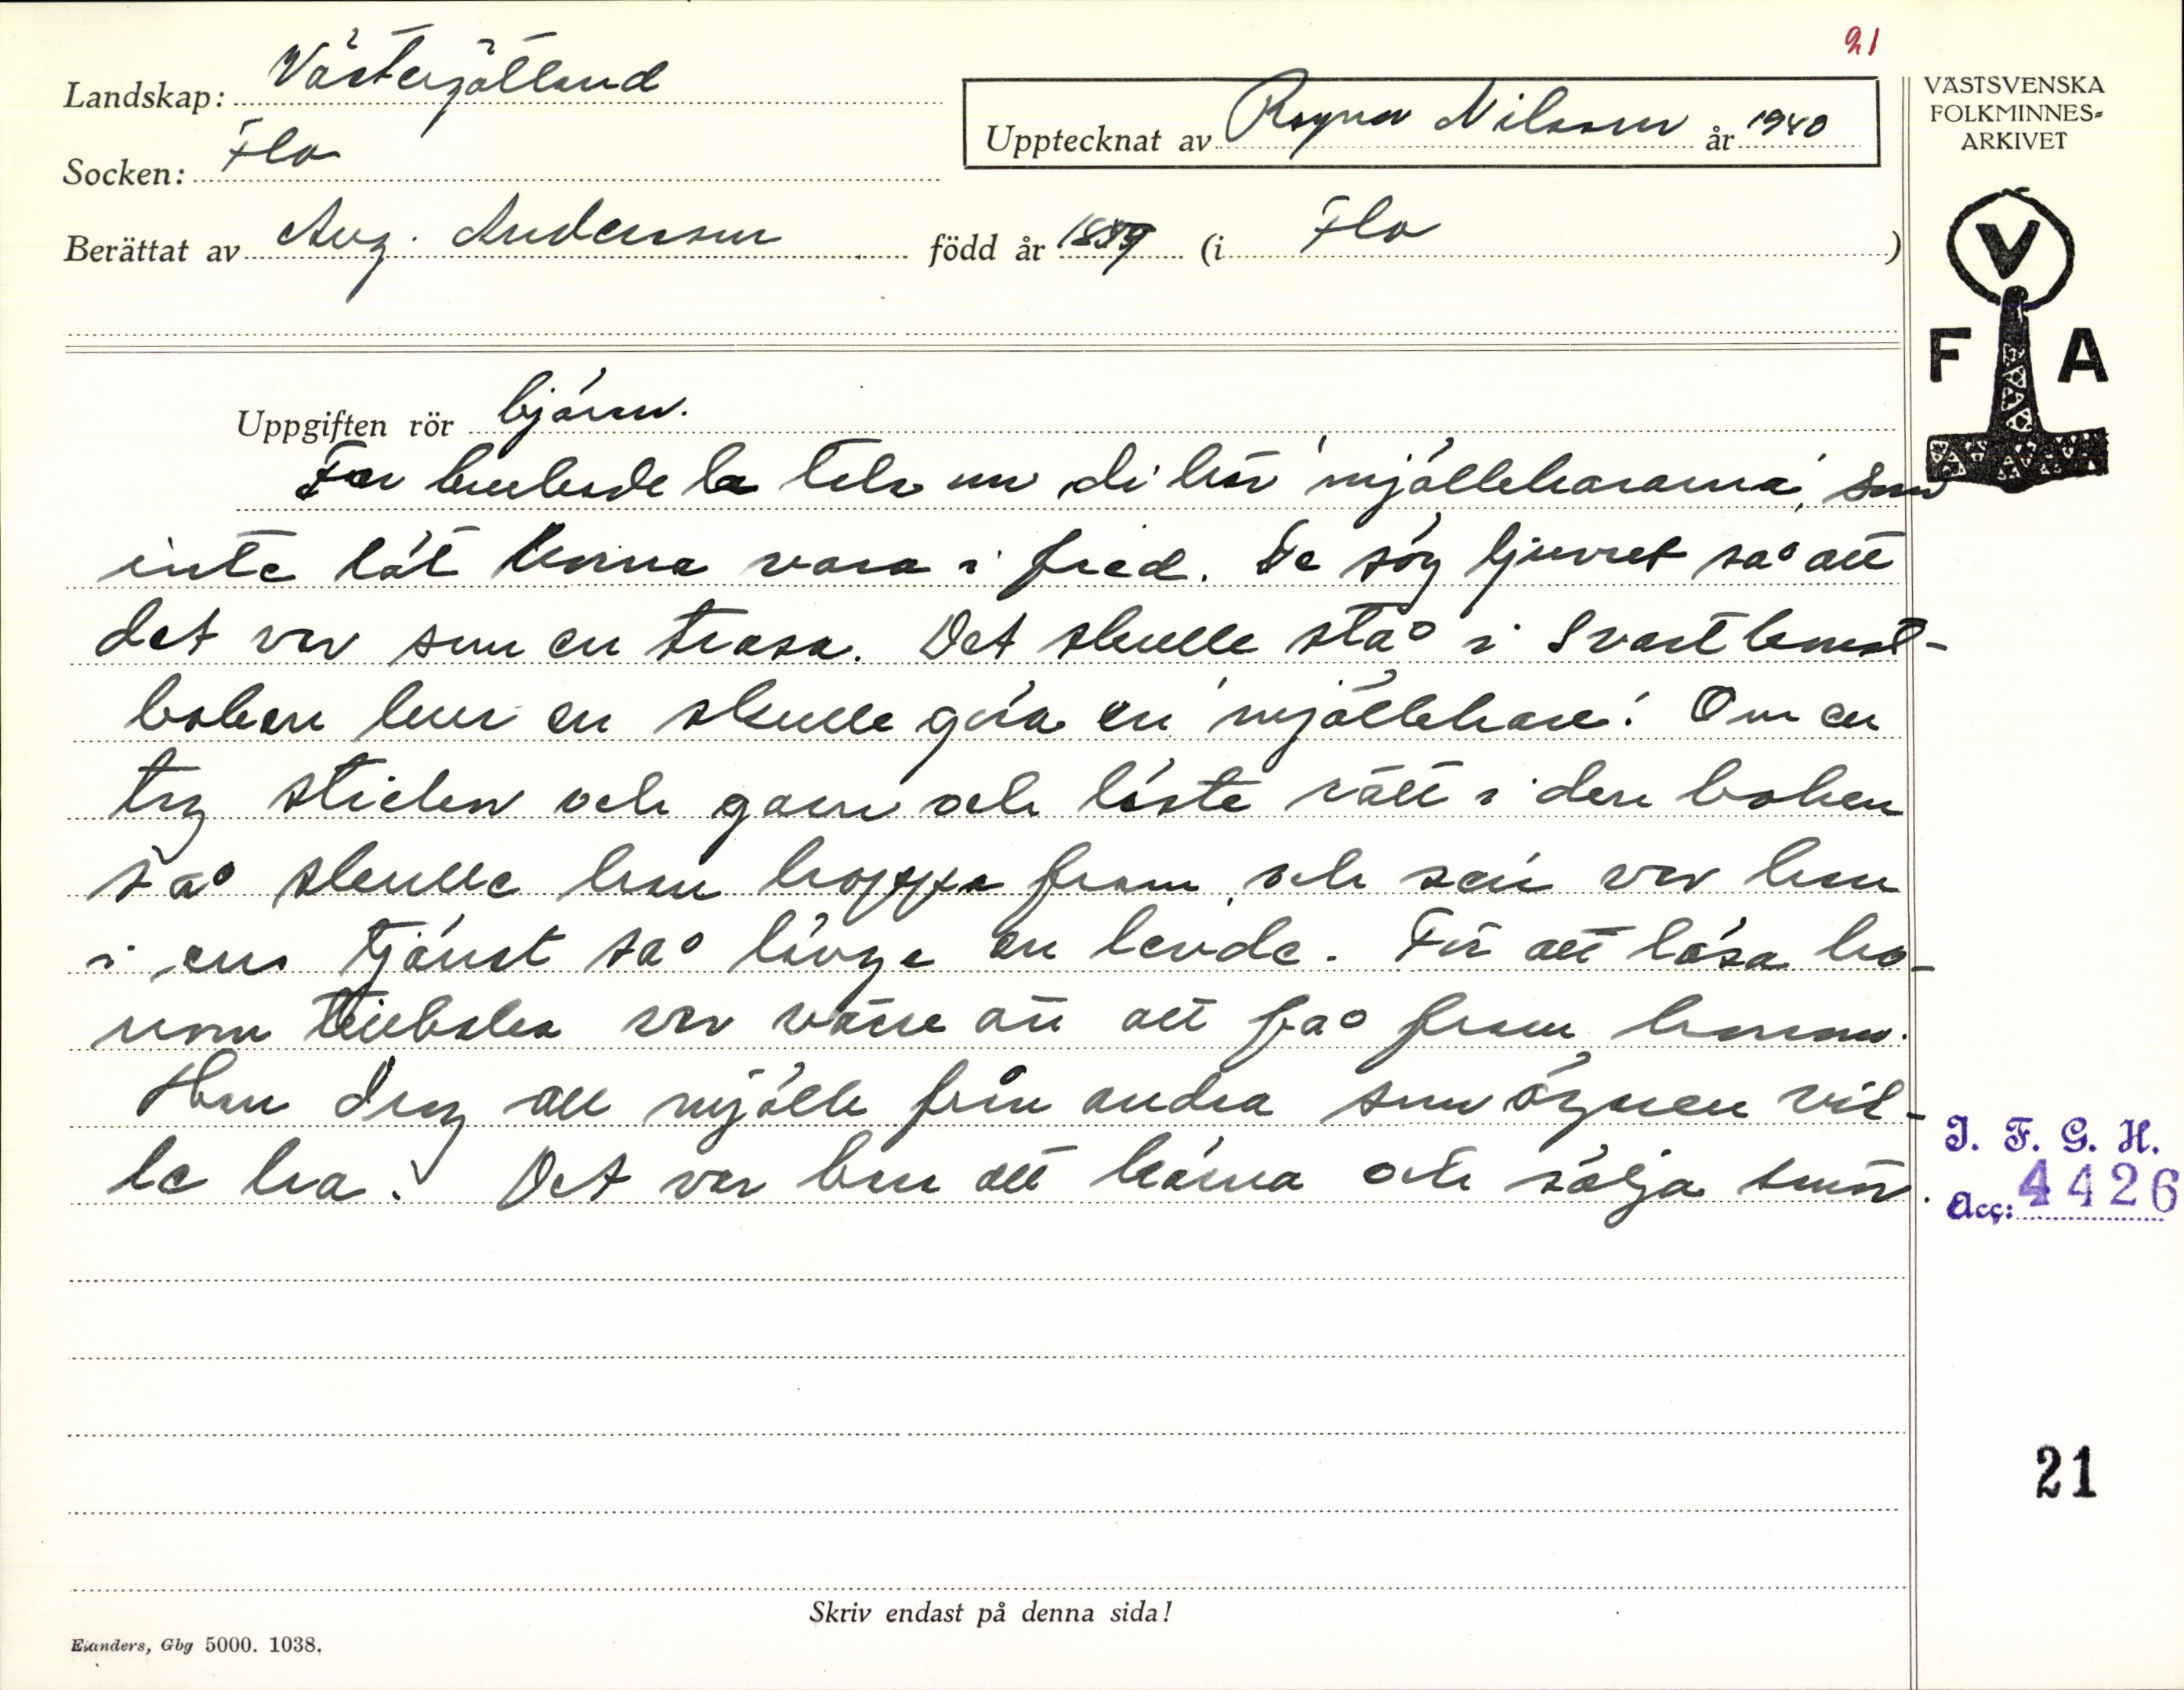 21
Landskap: Västergötland
Upptecknat av Ragnar Nilsson år 1940
VÄSTSVENSKA
FOLKMINNES-
ARKIVET
Socken: Flo
Berättat av Aug. Andersson född år (i Flo )
V
F A
Uppgiften rör bjäran.
Far brukade tala om di här 'mjölkehararna', som
inte lät korna vara i fred. De sög juvret så att
det var som en trasa. Det skulle stå i Svartkonst-
boken hur en skulle göra en 'mjölkehare'. Om en
tog stickor och garn och läste rätt i den boken
så skulle han hoppa fram, och sen var han
i ens tjänst så länge en levde. För att läsa ho-
nom tillbaka var värre än att få fram honom.
Han drog all mjölk från andra som ägaren vil-
le ha. Det var bra att kärna och sälja smör.
I. F. G. H.
Acc: 4426
21
Skriv endast på denna sida!
Elanders, Gbg 5000. 1038.